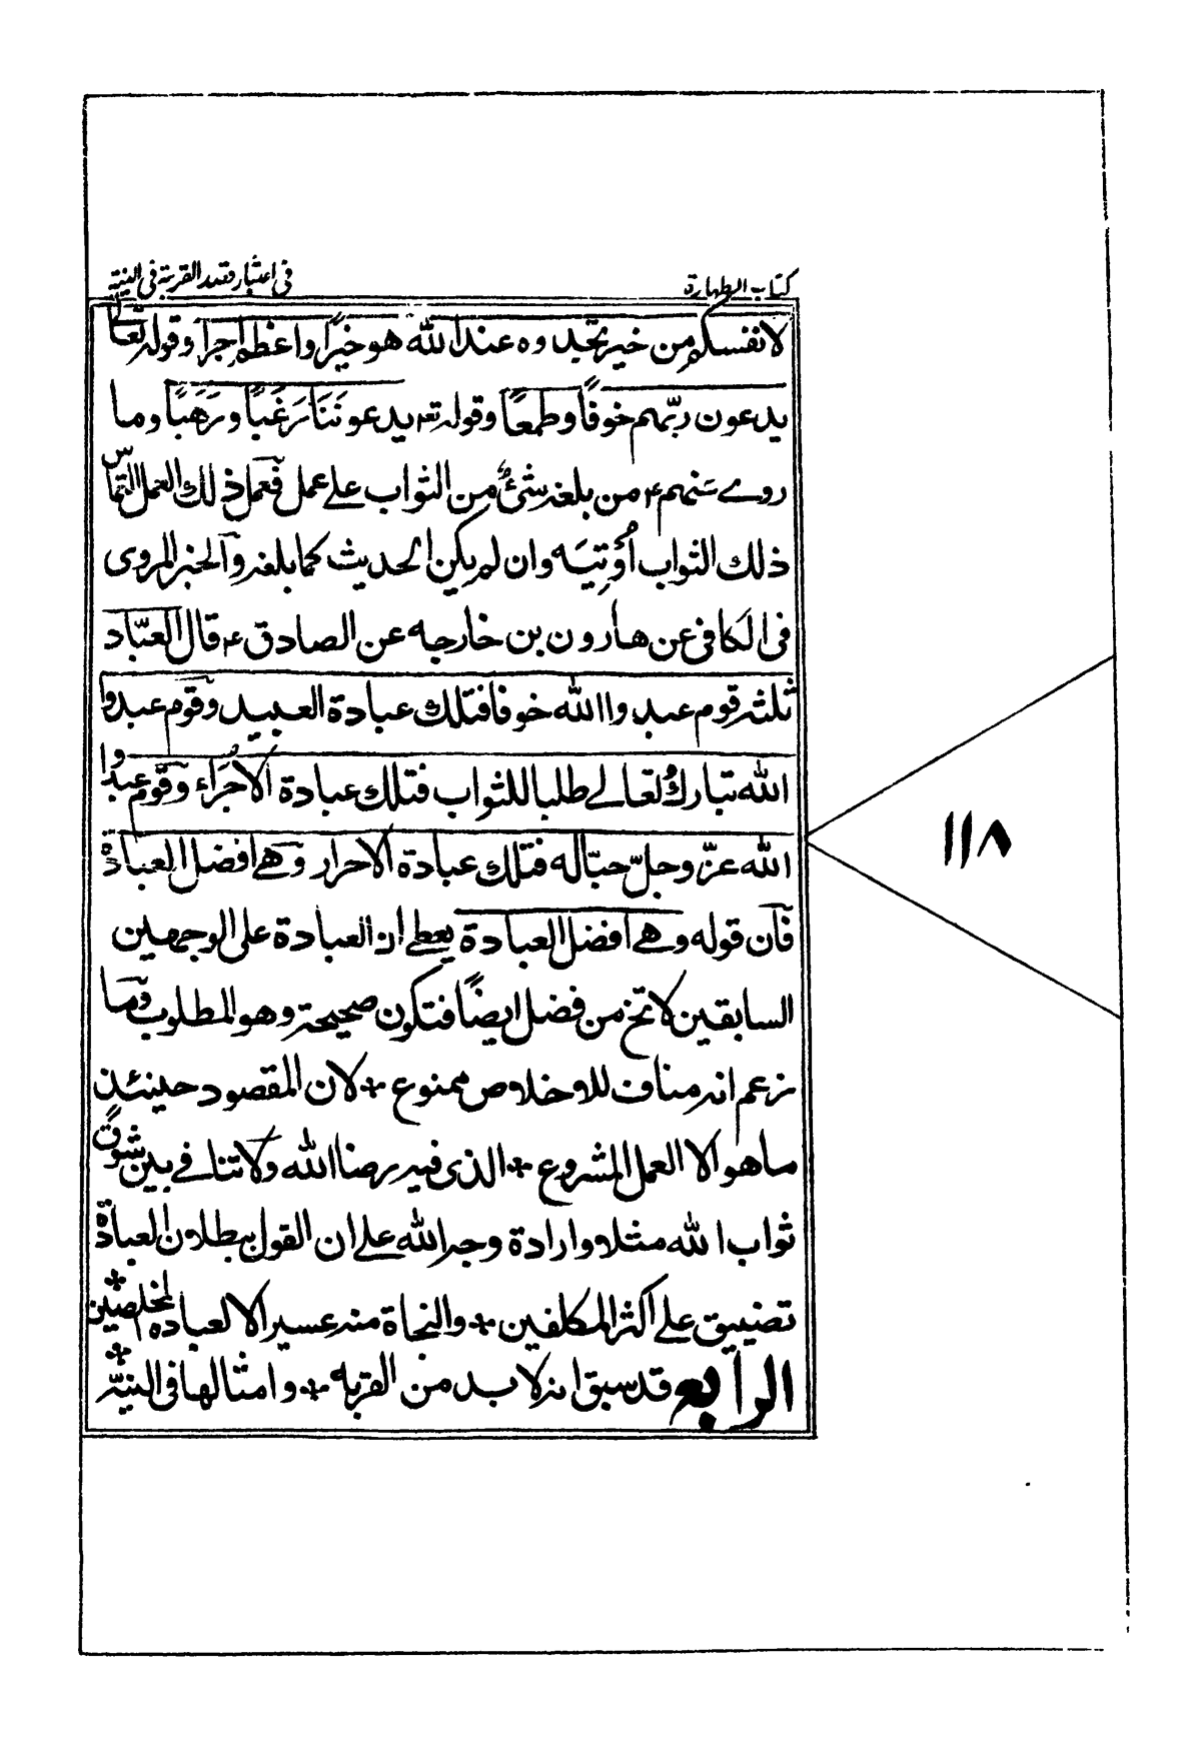 كتاب الطهارة
فى اعتبار قصد القربة فى النية
لانفسكم من خير تجدوه عند الله هو خيرًا واعظم اجرا وقوله تعالى
يدعون ربّهم خوفًا وطمعًا وقوله تع يدعوننَا رَغَبًا ورَهَبًا وما
روے عنهم ع من بلغه شئٌ من الثواب علے عمل فعمل ذلك العمل التماس
ذلك الثواب أُوتِيَه وان لم يكن الحديث كما بلغه والخبر المروى
فى الكافى عن هارون بن خارجه عن الصادق ع قال العبّاد
ثلثه قوم عبدوا الله خوفا فتلك عبادة العبيد وقوم عبدوا
الله تبارك وتعالے طلبا للثواب فتلك عبادة الاُجَراء وقوم عبدوا
الله عزّ وجلّ حبّا له فتلك عبادة الاحرار وهے افضل العبادة
فان قوله وهے افضل العبادة يعطے ان العبادة على الوجهين
السابقين لا تخ من فضل ايضًا فتكون صحيحة وهو المطلوب وما
زعم انه مناف للاخلاص ممنوع * لان المقصود حينئذٍ
ما هو الا العمل المشروع * الذى فيه رضا الله ولا تنافے بين شوق
ثواب الله مثلا وارادة وجه الله علے ان القول ببطلان العبادة
تضييق علے اكثر المكلفين * والنجاة منه عسير الا لعباده المخلصين *
الرابع قد سبق انه لا بد من القربه * وامثالها فى النيّة *
١١٨